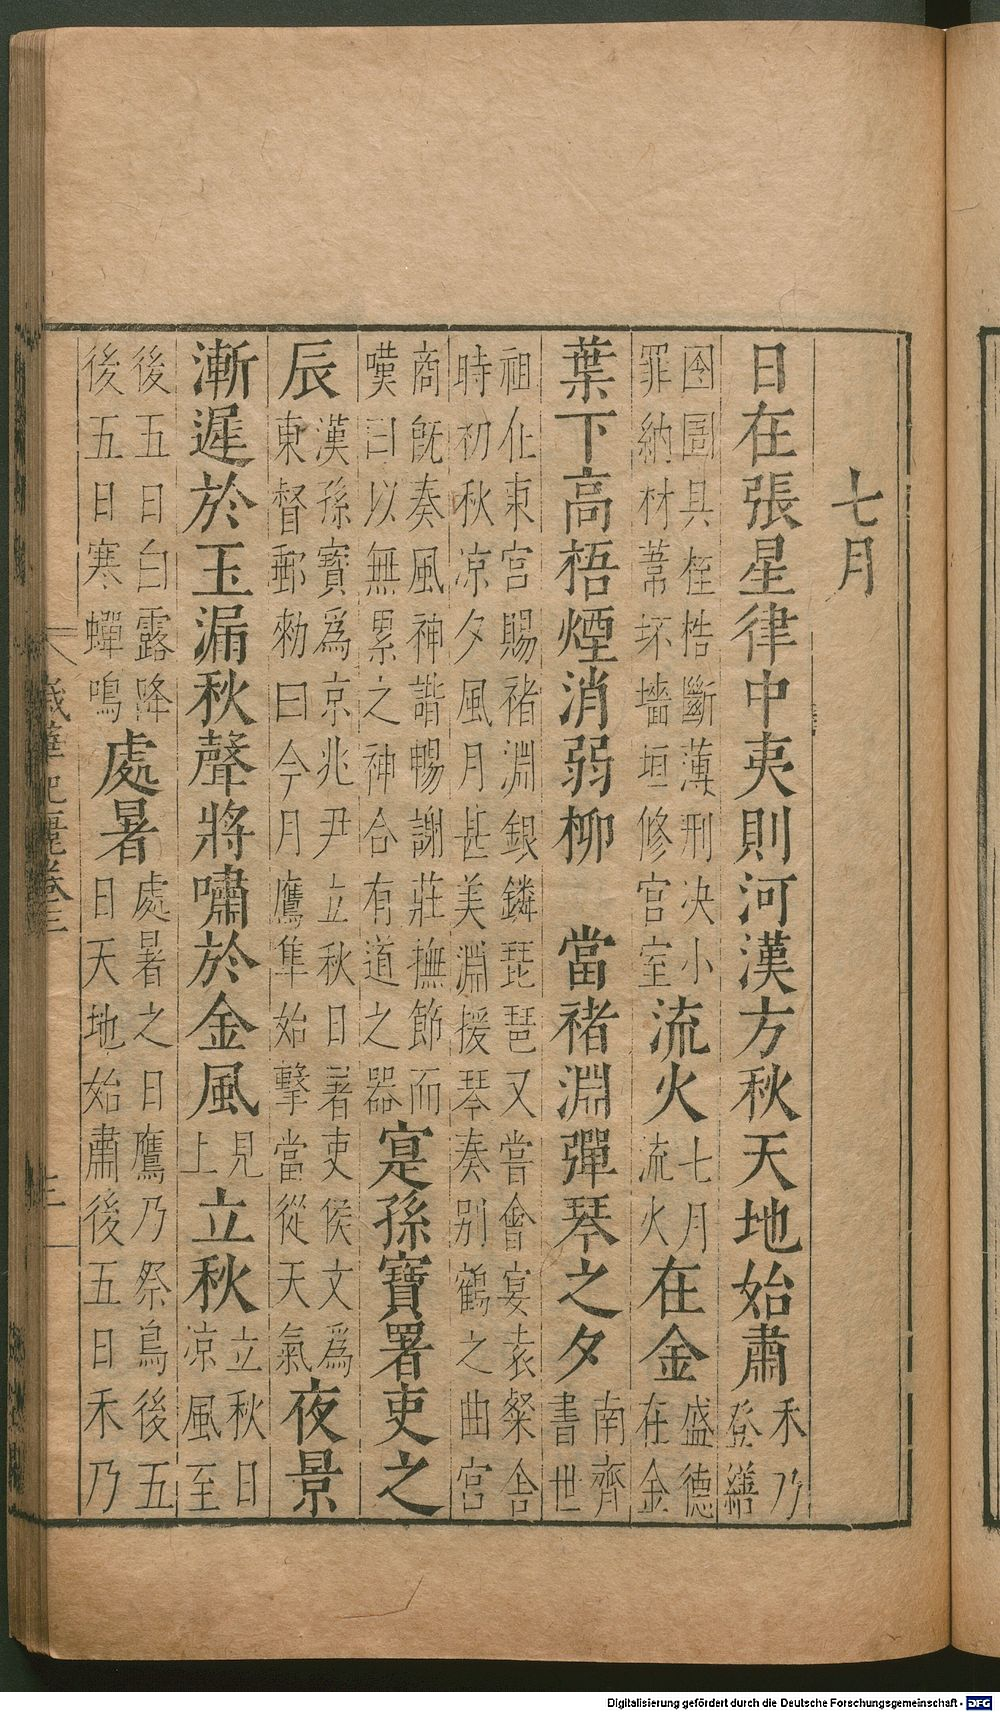 七月
日在張星律中夷則河漢方秋天地始肅禾乃登繕
囹圄具桎梏斷薄刑决小罪納材葦坏墻垣修宮室流火七月流火在金盛德在金
葉下高梧煙消弱柳 當褚淵彈琴之夕南齊書世
祖在東宮賜褚淵銀鏻琵琶又嘗會宴袁粲舍時初秋凉夕風月甚美淵援琴奏別鶴之曲宮
商旣奏風神諧暢謝莊撫節而嘆曰以無累之神合有道之器寔孫寶署吏之
辰漢孫寶爲京兆尹立秋日署吏侯文爲東督郵勑曰今月鷹隼始擊當從天氣夜景
漸遲於玉漏秋聲將嘯於金風見上立秋立秋日凉風至
後五日白露降後五日寒蟬鳴處暑處暑之日鷹乃祭鳥後五日天地始肅後五日禾乃
歲華紀麗卷三
Digitalisierung gefördert durch die Deutsche Forschungsgemeinschaft - DFG